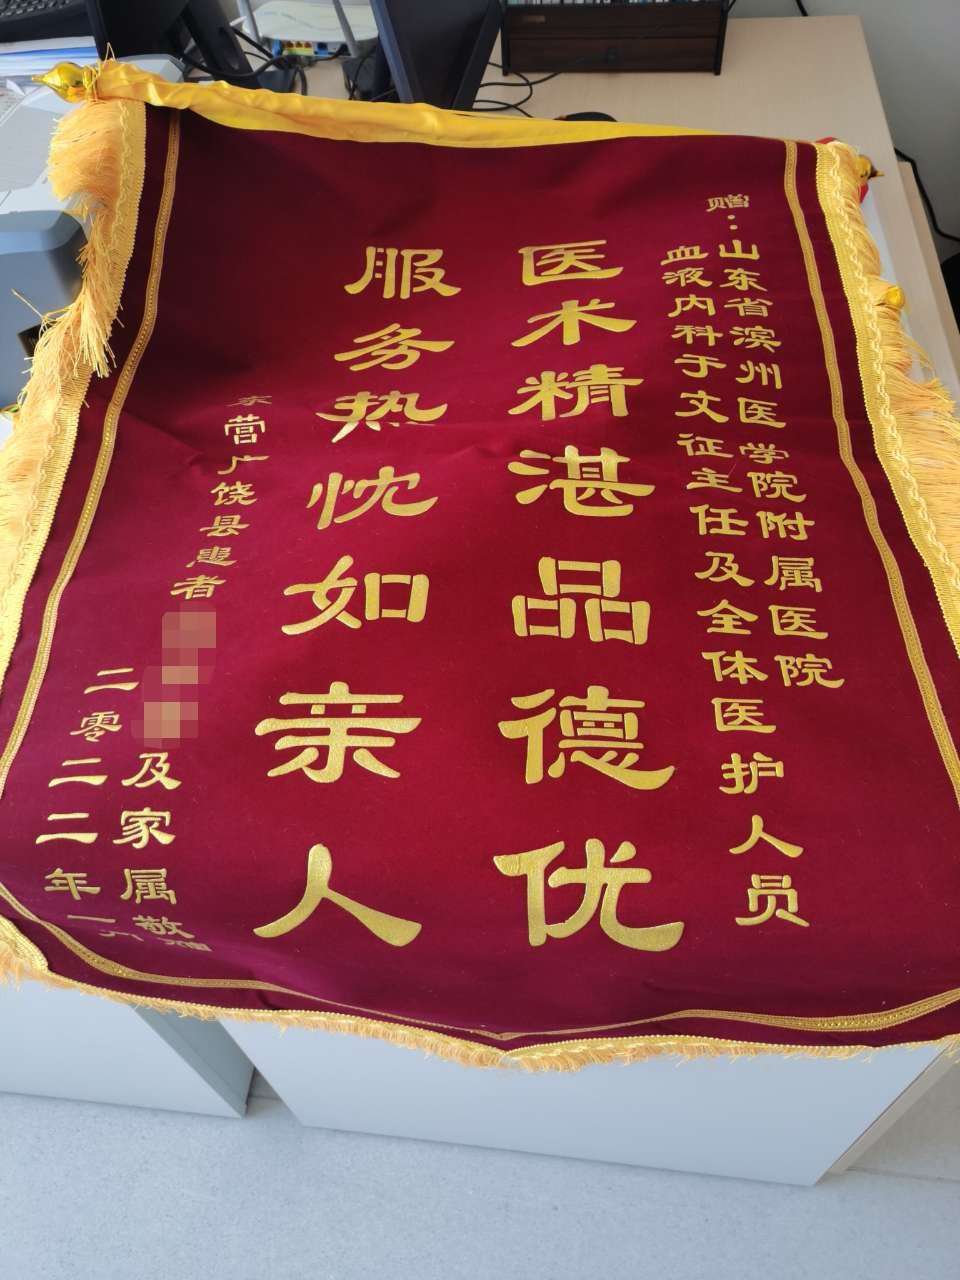 赠：山东省滨州医学院附属医院
血液内科于文征主任及全体医护人员
医术精湛品德优
服务热忱如亲人
东营广饶县患者
及家属敬赠
二零二二年一